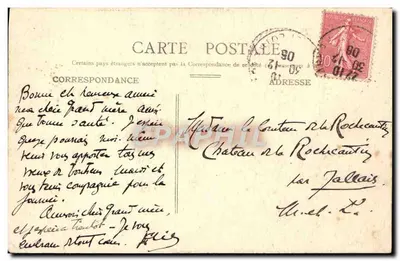 CARTE POSTALE
Certains pays étrangers n'acceptent pas la Correspondance de ce côté
CORRESPONDANCE
ADRESSE
22-10
30-12
06
Bonne et heureuse année
ma chère Grand mère ainsi
que bonne santé. J'espère
que je pourrais moi-même
vous apporter
vœux de bonheur mardi et
vous tenir compagnie pour la
journée.
Au revoir chère Grand mère,
et bientôt - Je vous
embrasse
Madame la Comtesse de la Rochecantin
Château de la Rochecantin
par Jallais
M. et L.